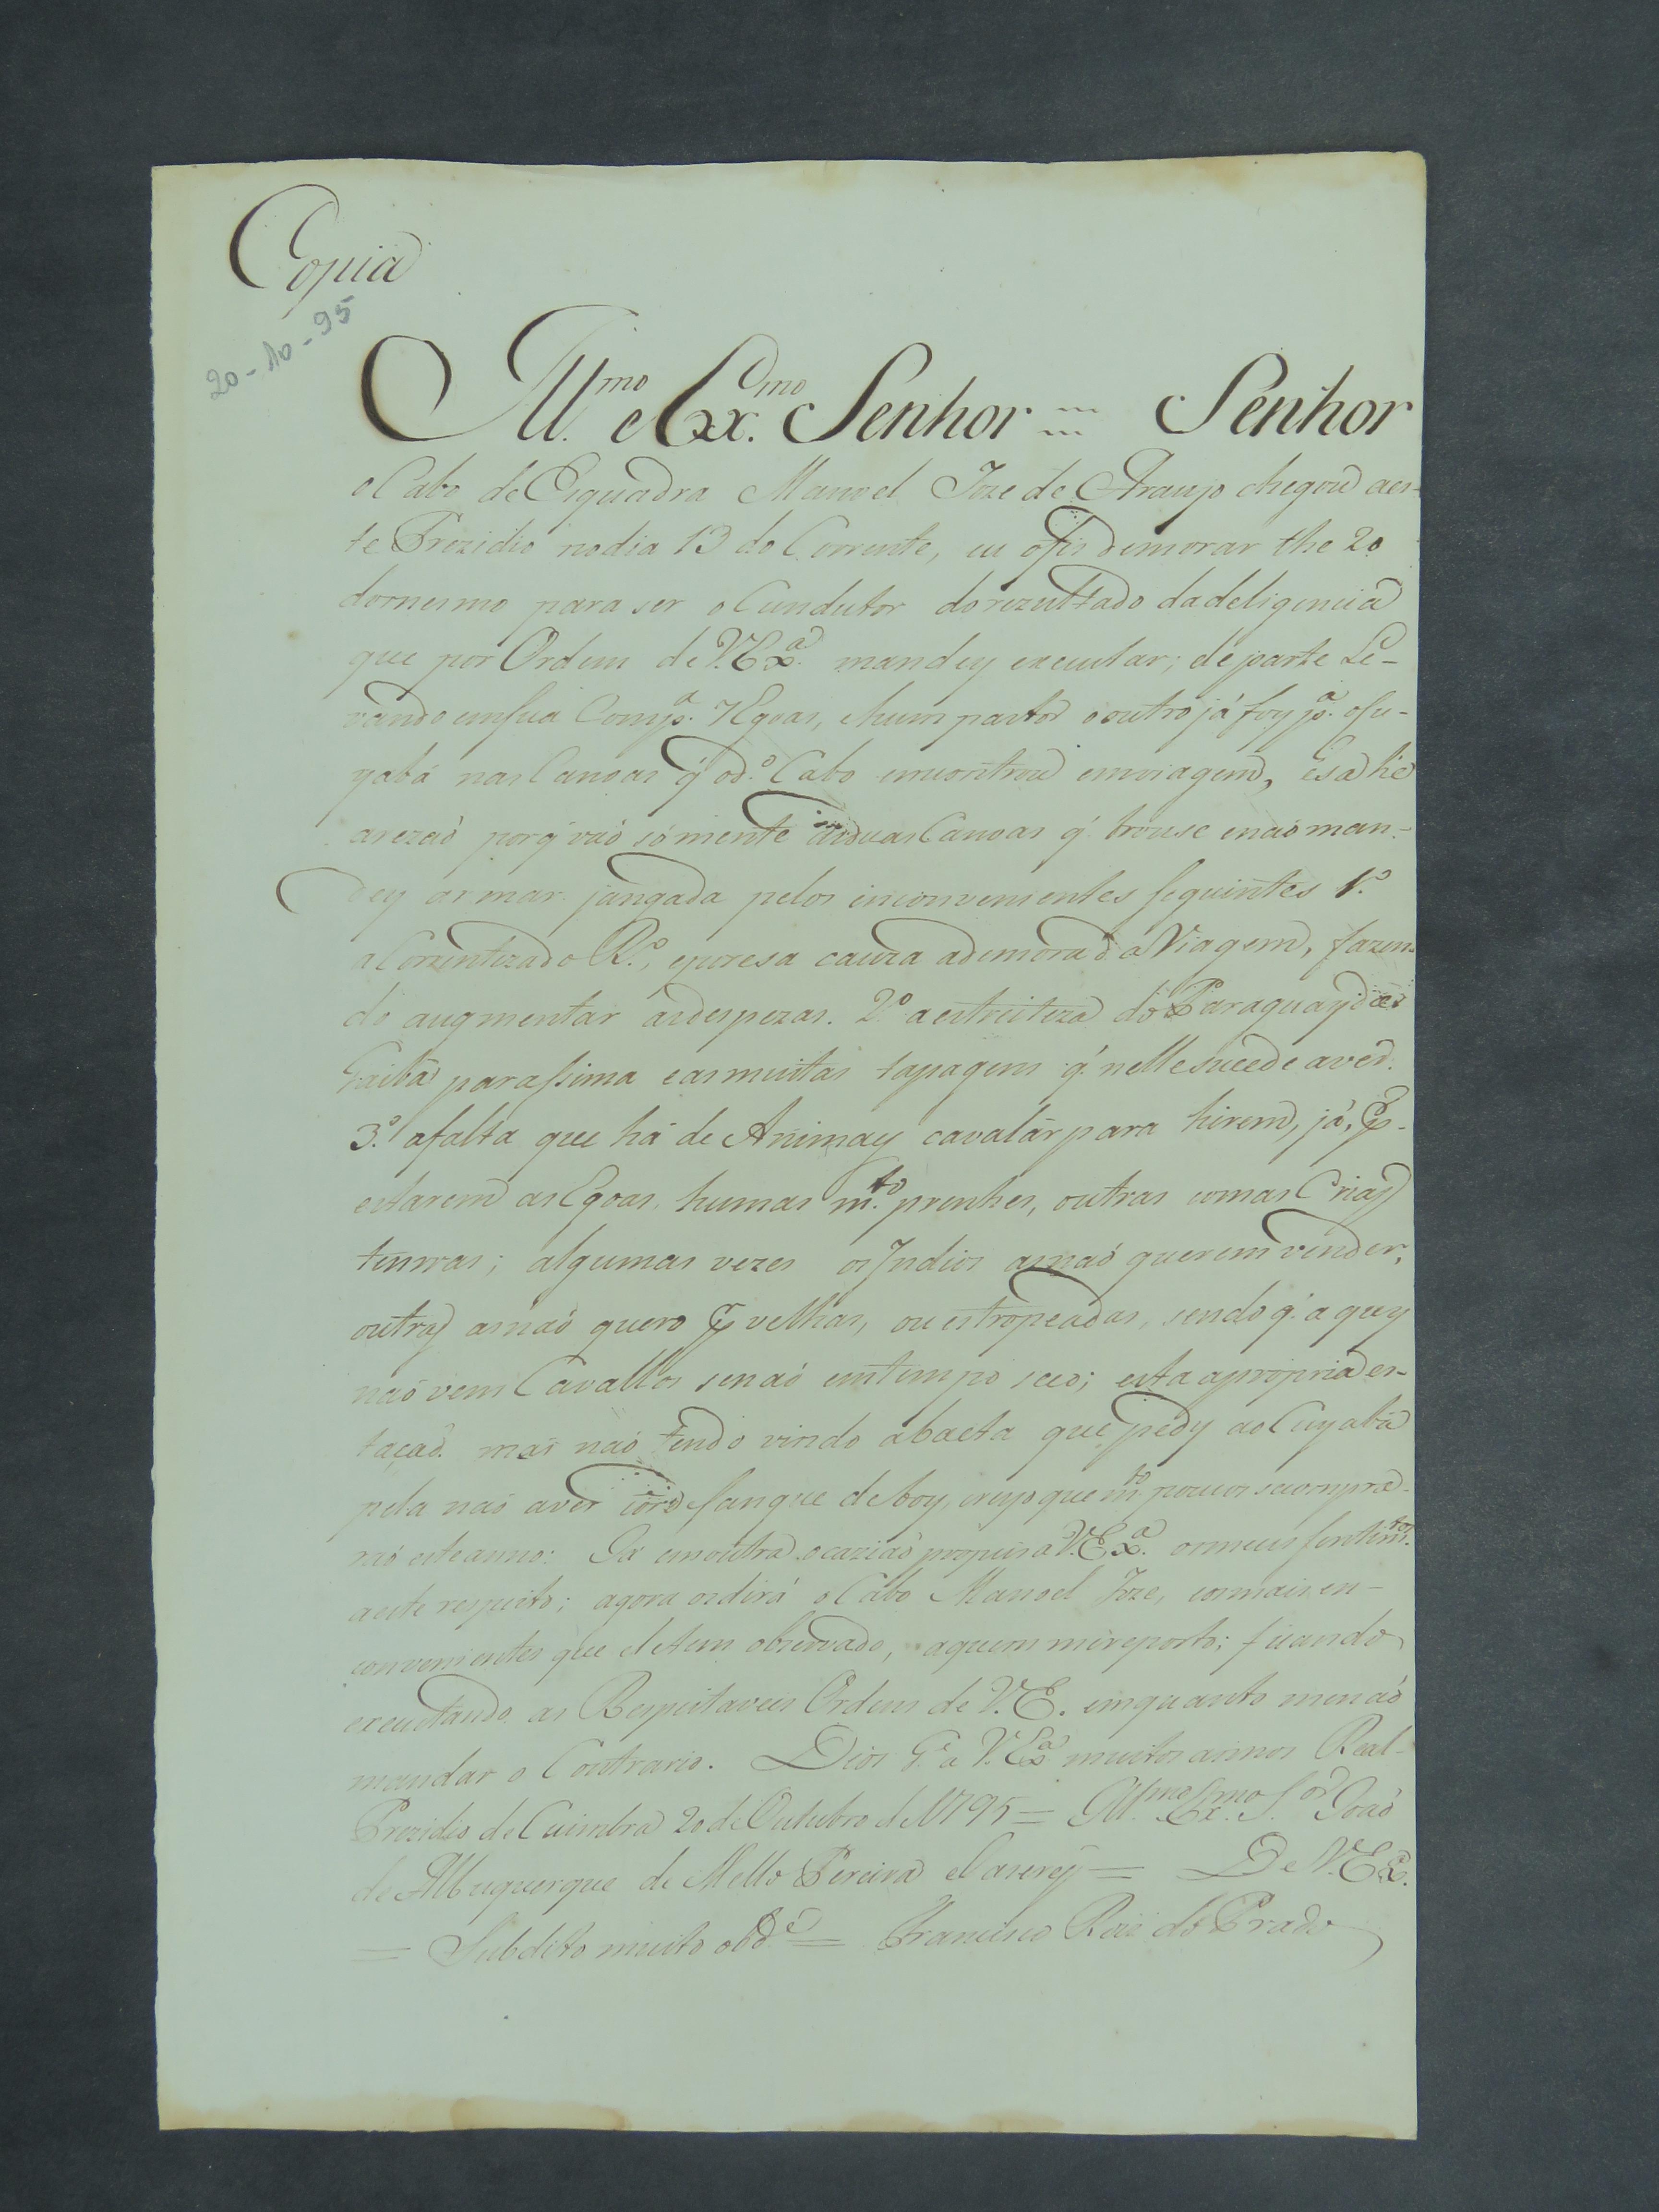 Copia
20-10-95
Ill.mo e Ex.mo Senhor Senhor
o Cabo de Esquadra Manoel Joze de Araujo chegou aes-
te Prezidio nodia 13 do Corrente, eu ofis demorar the 20
domesmo para ser o Cundutor dorezultado dadeligencia
que por Ordem deV.Ex.a mandey executar; departe Le-
vando emsua Comp.a 7 Egoas, ehum pastor o outro já foy p.a oCu-
yabá nas Canoas q̃ od.o Cabo emcontrou emviagem, Esa hé
arezaó porq̃ vaó sómente asduas Canoas q̃ trouse enaó man-
dey armar jangada pelos inconvenientes seguintes 1.o
aCorrenteza do R.o, eporesa cauza ademora da Viagem, fazen-
do augmentar asdespezas. 2.o aestreiteza do Paraguay das
Gaiba parassima easmuitas tapagens q̃ nelle sucede aver.
3.o afalta que há de Animay cavalár para hirem, já, p.r
estarem as Egoas, humas m.to prenhes, outras comas Crias
tenras; algumas vezes os Indios asnaó querem vender,
outras asnaó quero p.r velhas, ou estropeadas, sendo q̃ aquy
naó vem Cavallos senaó emtempo seco; esta apropria es-
taçaó. mas naó tendo vindo abaeta que pedy ao Cuyabá
pela naó aver cor de sangue de boy, creyo que m.to poucos secompra-
raó este anno: Já em outra ocaziaó propus a V.Ex.a osmeus sentim.tos
aeste respeito; agora osdirá o Cabo Manoel Joze, eosmais en-
convenientes que elletem observado, aquem mereporto; ficando
executando as Respeitaveis Ordens de V.E. emquanto menaó
mandar o Contrario. Dios G.e a V.Ex.a muitos annos Real-
Prezidio de Cuimbra 20 de Outubro de 1795 = Ill.mo Ex.mo S.or Joaó
de Albuquerque de Mello Pereira e Caseres = De V.Ex.a
= Subdito muito obd.e = Francisco Roiz do Prado